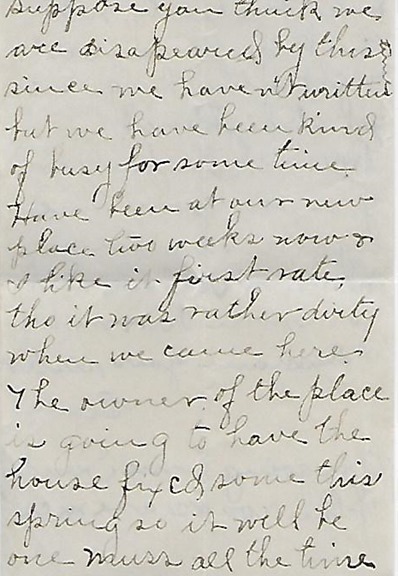 suppose you think we
are disapeared by this time
since we haven't written
but we have been kind
of busy for some time.
Have been at our new
place two weeks now &
I like it first rate,
tho it was rather dirty
when we came here.
The owner of the place
is going to have the
house fixed some this
spring so it will be
one muss all the time